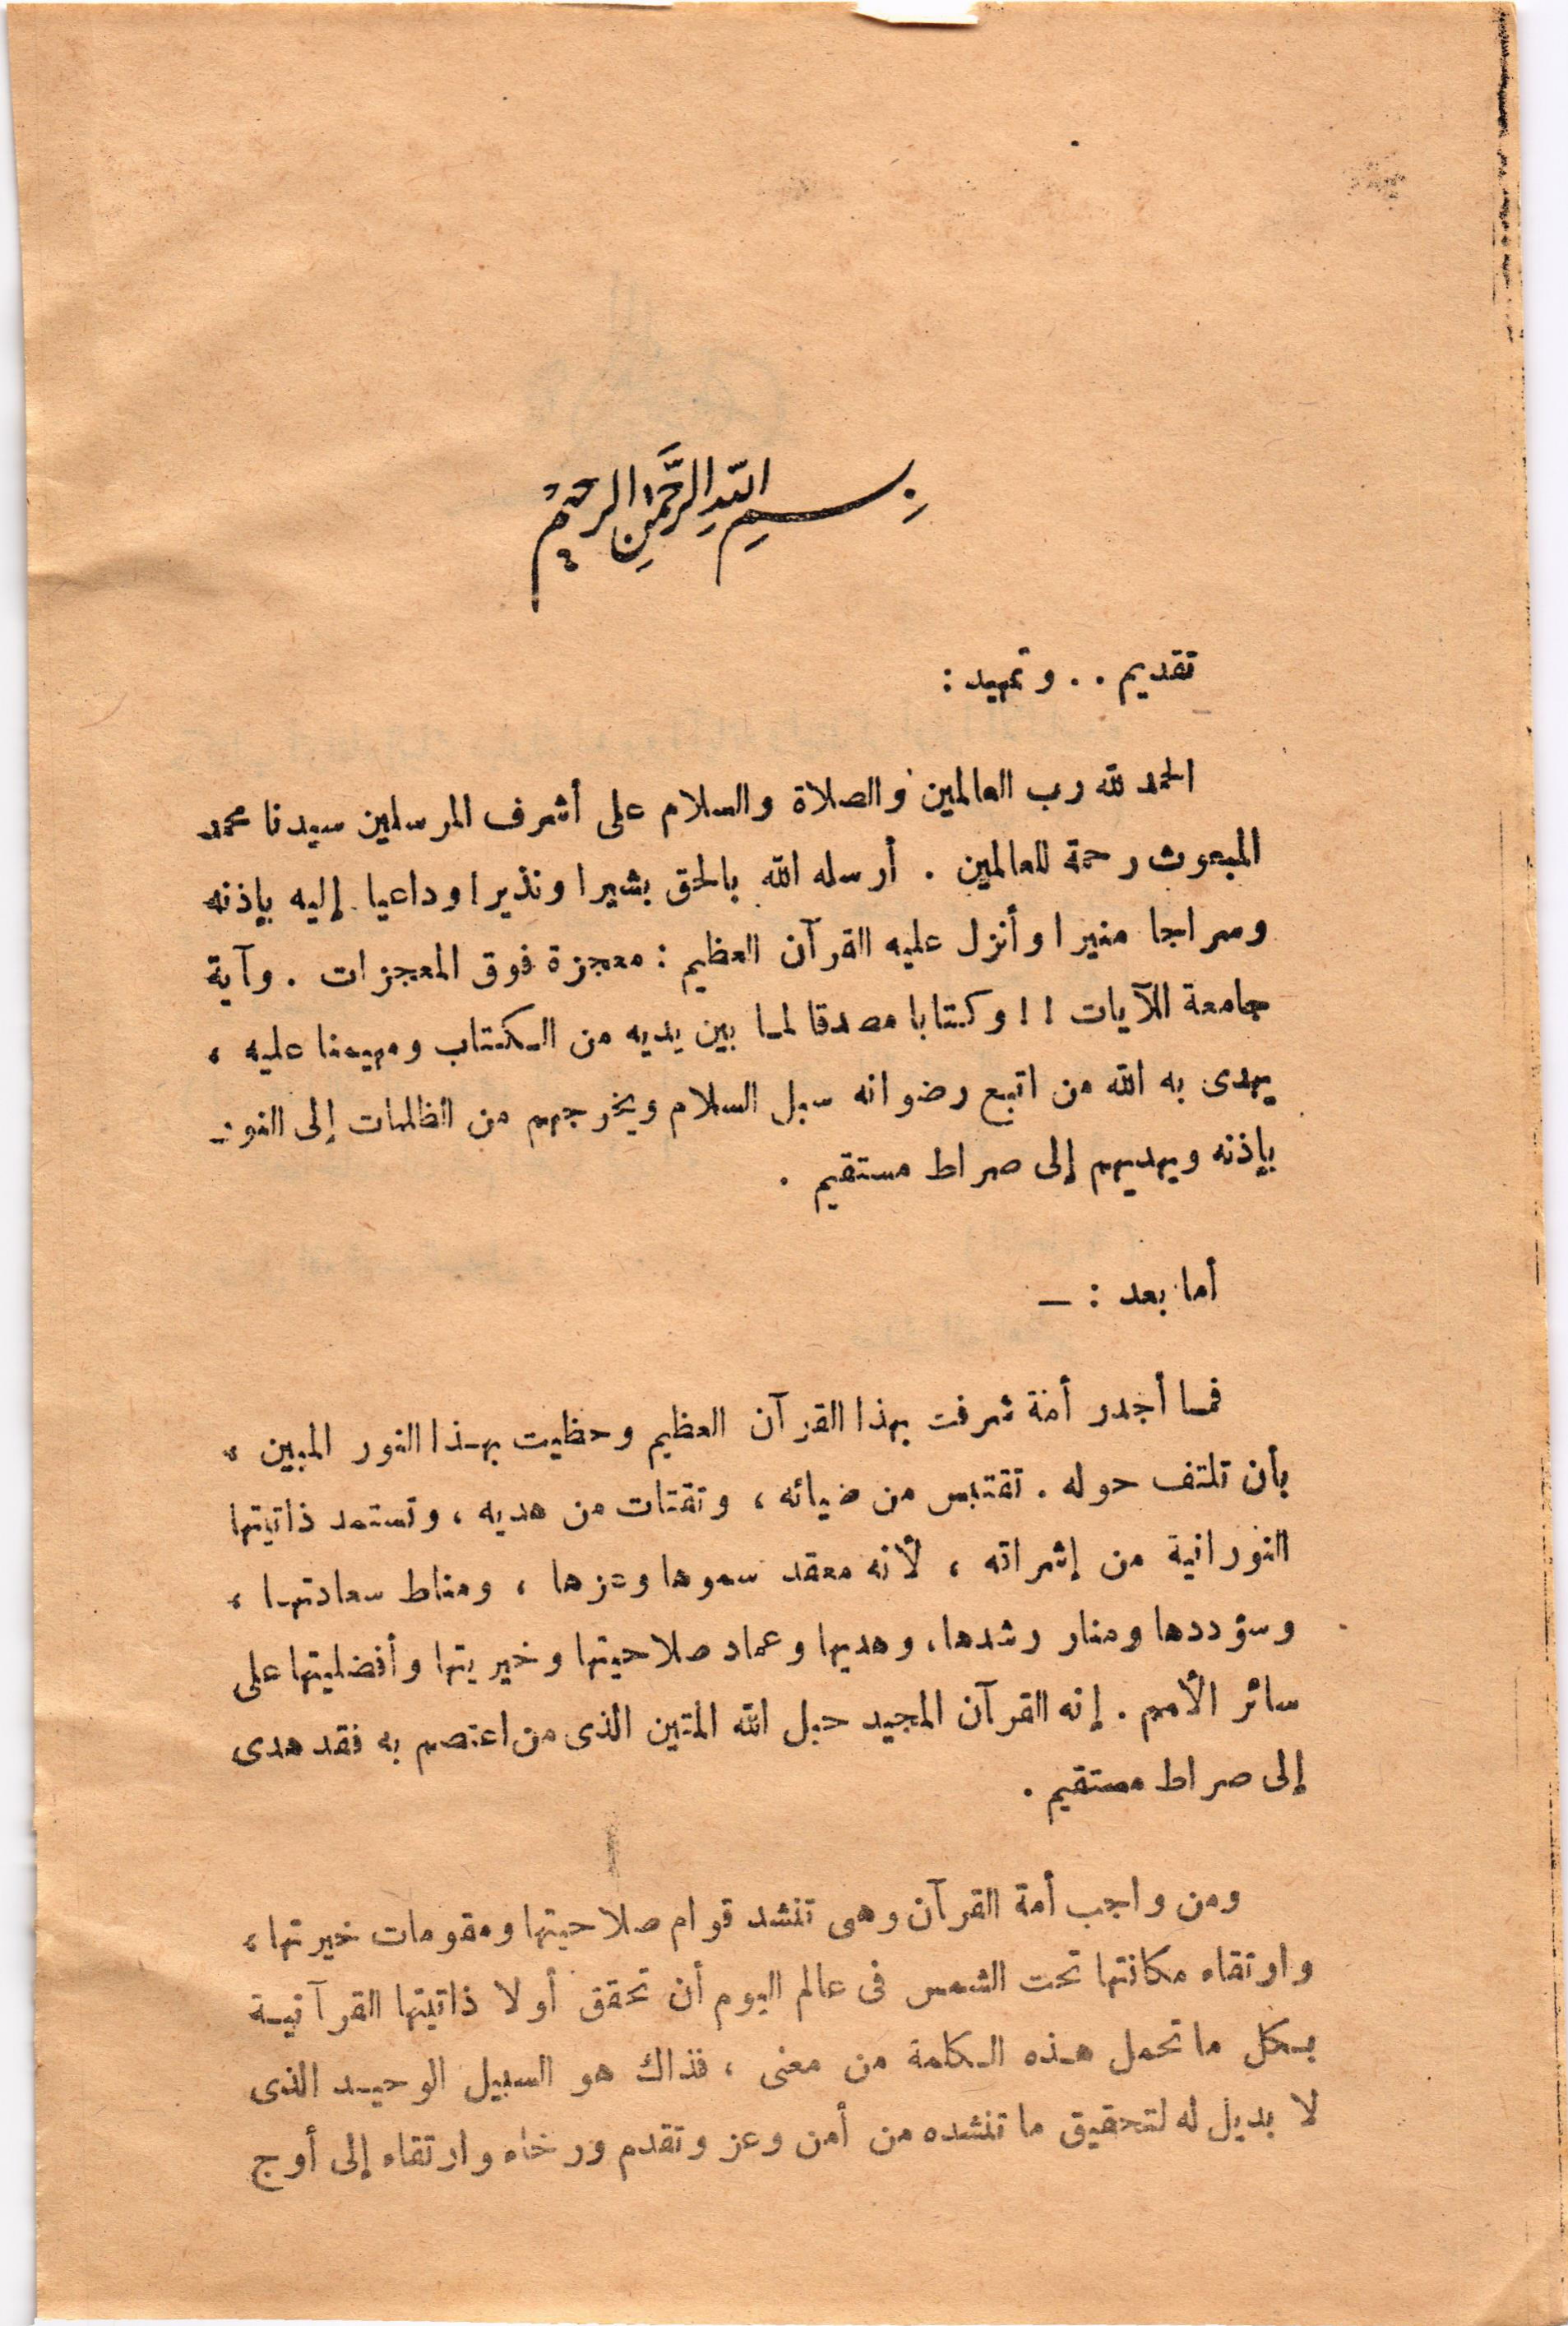 بِسْمِ اللّٰهِ الرَّحْمٰنِ الرحيم
تقديم . . وتمهيد :
الحمد لله رب العالمين والصلاة والسلام على أشرف المرسلين سيدنا محمد
المبعوث رحمة للعالمين . أرسله الله بالحق بشيرا ونذيرا وداعيا إليه بإذنه
وسراجا منيرا وأنزل عليه القرآن العظيم : معجزة فوق المعجزات . وآية
جامعة للآيات ! ! وكتابا مصدقا لما بين يديه من الكتاب ومهيمنا عليه ،
يهدى به الله من اتبع رضوانه سبل السلام ويخرجهم من الظلمات إلى النور
بإذنه ويهديهم إلى صراط مستقيم .
أما بعد : —
فما أجدر أمة شرفت بهذا القرآن العظيم وحظيت بهذا النور المبين ،
بأن تلتف حوله . تقتبس من ضيائه ، وتقتات من هديه ، وتستمد ذاتيتها
النورانية من إشراقه ، لأنه معقد سموها وعزها ، ومناط سعادتها ،
وسؤددها ومنار رشدها ، وهديها وعماد صلاحيتها وخيريتها وأفضليتها على
سائر الأمم . إنه القرآن المجيد حبل الله المتين الذى من اعتصم به فقد هدى
إلى صراط مستقيم .
ومن واجب أمة القرآن وهى تنشد قوام صلاحيتها ومقومات خيرتها ،
وارتقاء مكانتها تحت الشمس فى عالم اليوم أن تحقق أولا ذاتيتها القرآنية
بكل ما تحمل هذه الكلمة من معنى ، فذاك هو السبيل الوحيد الذى
لا بديل له لتحقيق ما تنشده من أمن وعز وتقدم ورخاء وارتقاء إلى أوج